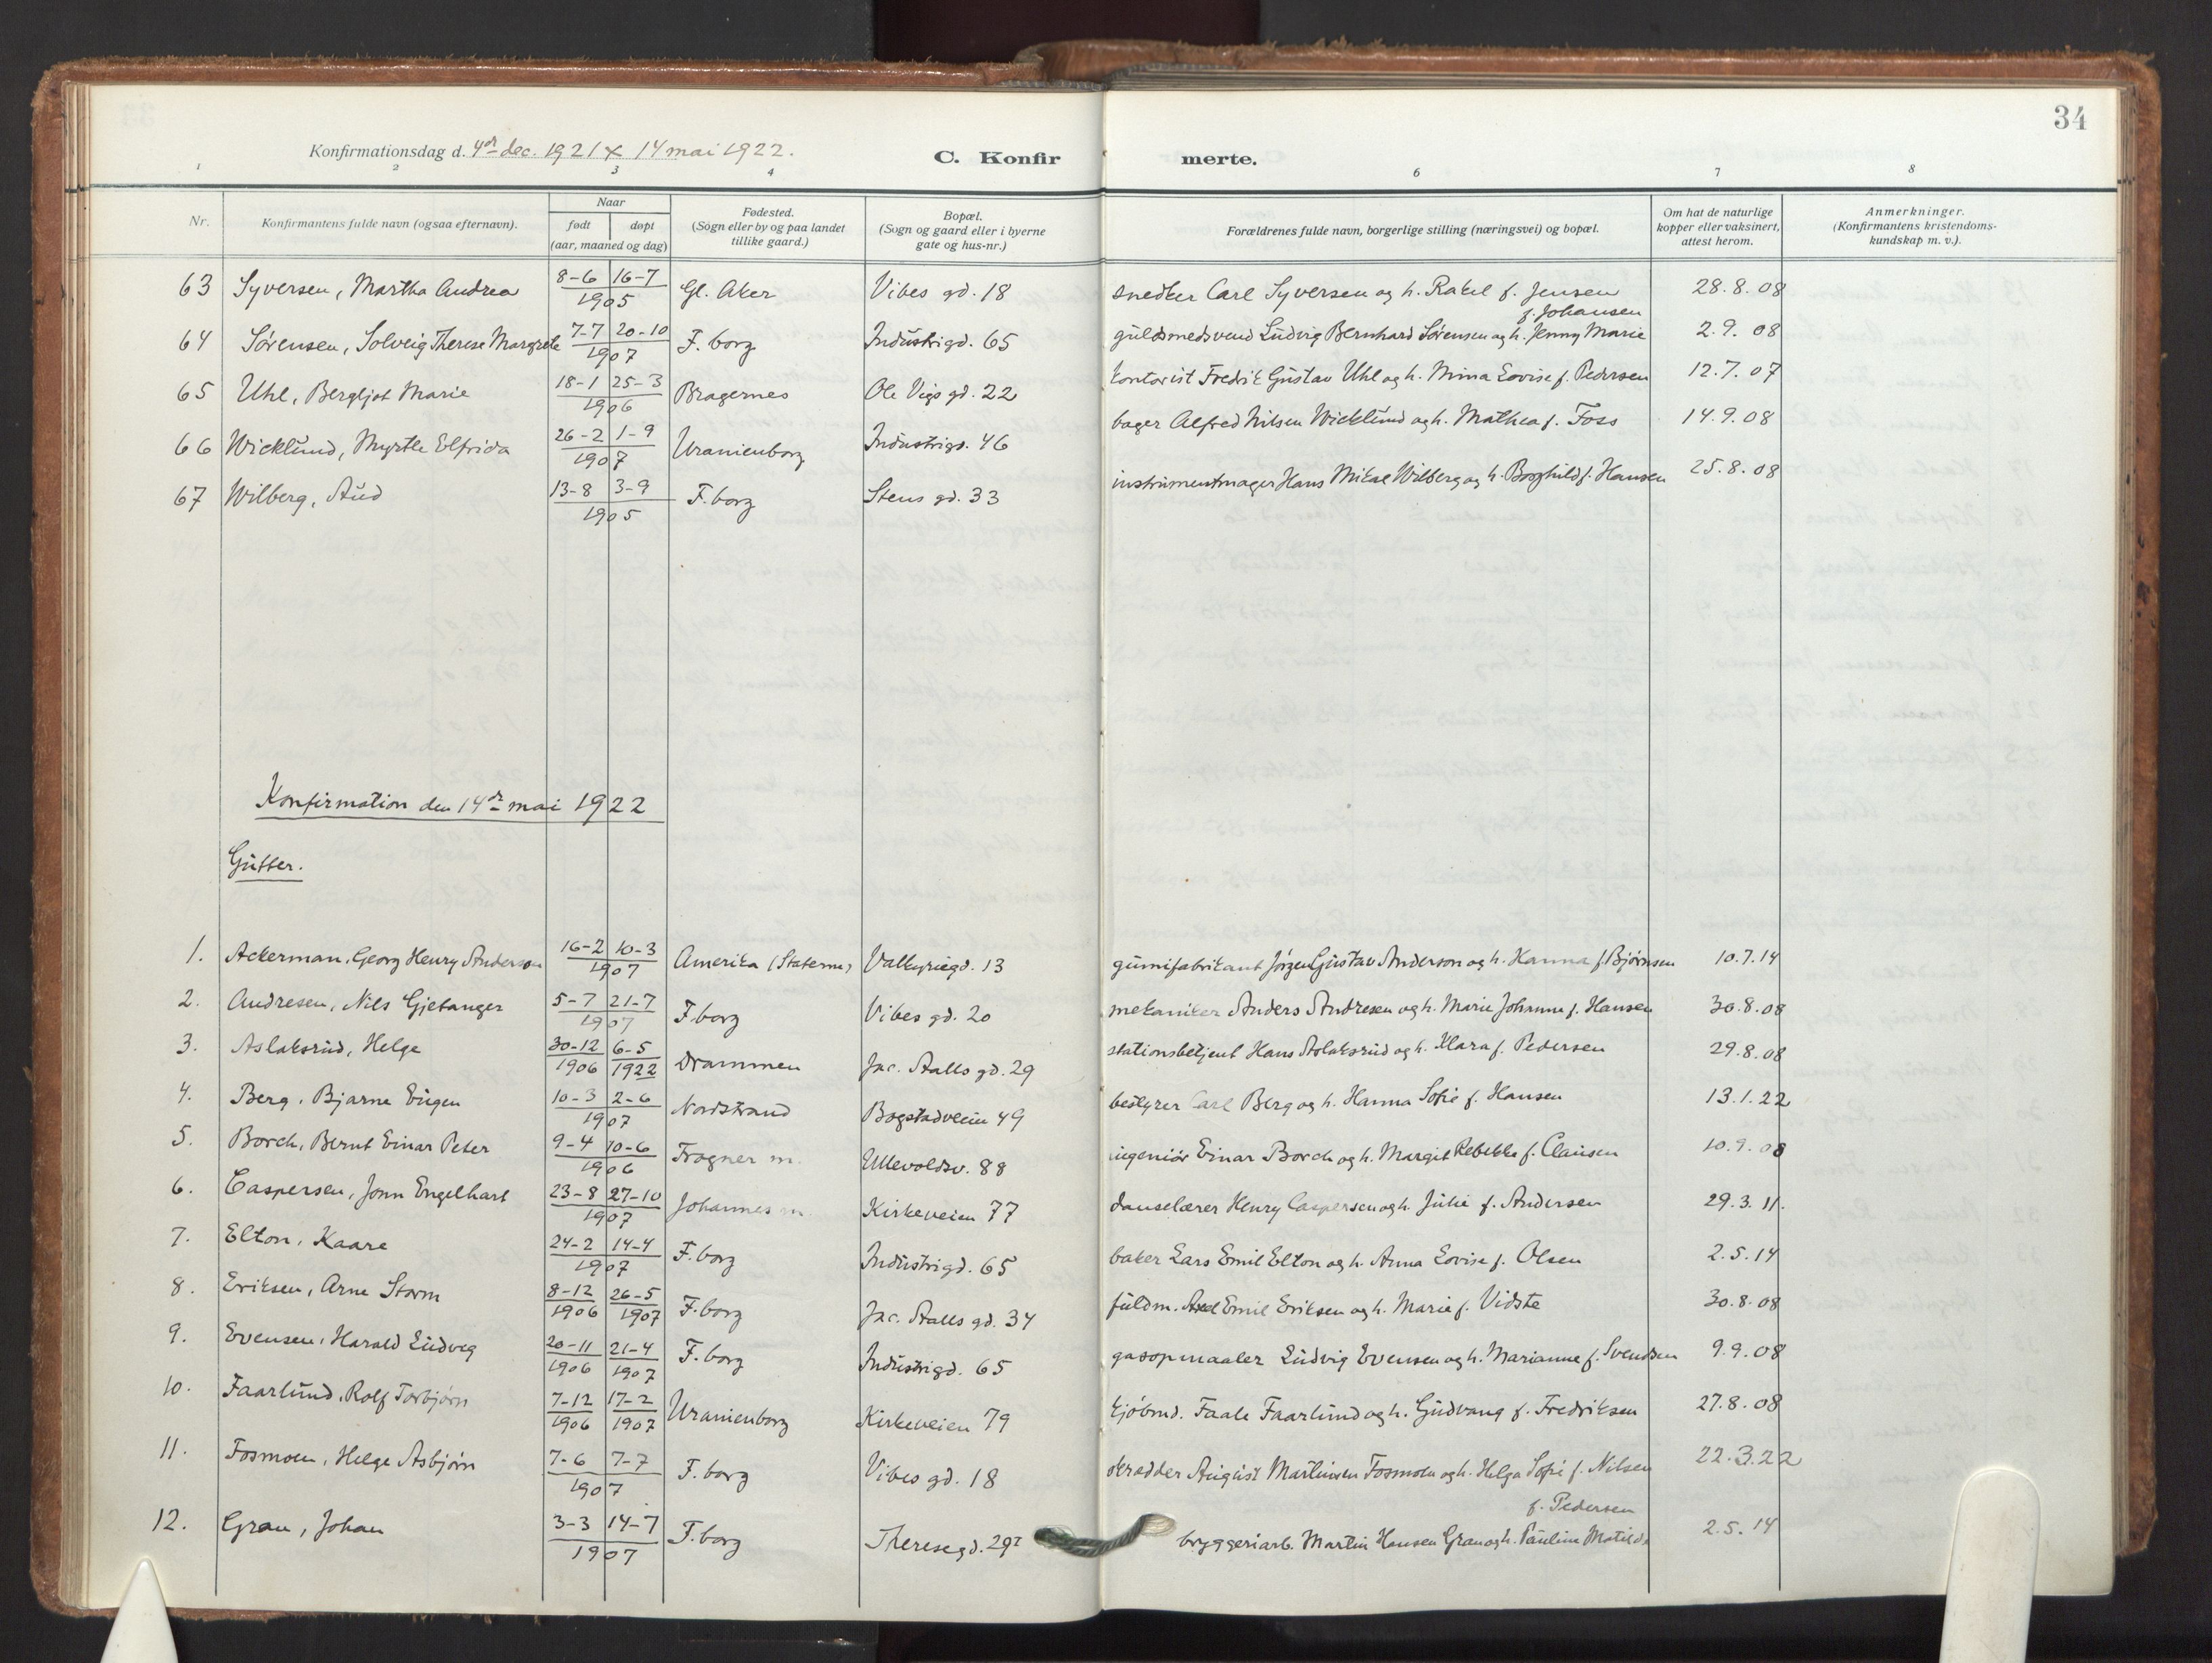 34
Konfirmationsdag d. 4de dec. 1921 x 14 mai 1922.
C. Konfirmerte.
1 2 3 4 6 7 8
Nr.
Konfirmantens fulde navn (ogsaa efternavn).
Naar
født døpt
(aar, maaned og dag)
Fødested.
(Sogn eller by og paa landet
tillike gaard.)
Bopæl.
(Sogn og gaard eller i byerne
gate og hus-nr.)
Forældrenes fulde navn, borgerlige stilling (næringsvei) og bopæl.
Om hat de naturlige
kopper eller vaksinert,
attest herom.
Anmerkninger.
(Konfirmantens kristendoms-
kundskap m. v.).
63 Syversen, Martha Andrea 8-6 16-7 1905 Gl. Aker Vibes gd. 18 snedker Carl Syversen og h. Rakel f. Jensen 28.8.08
f. Johansen
64 Sørensen, Solveig Therese Margrete 7-7 20-10 1907 F. borg Industrigd. 65 guldsmedsvend Ludvig Bernhard Sørensen og h. Jenny Marie 2.9.08
65 Uhl, Bergljot Marie 18-1 25-3 1906 Bragernes Ole Vigs gd. 22 kontorist Fredrik Gustav Uhl og h. Mina Lovise f. Pedersen 12.7.07
66 Wicklund, Myrtle Elfrida 26-2 1-9 1907 Uranienborg Industrigd. 46 bager Alfred Nilsen Wicklund og h. Mathea f. Foss 14.9.08
67 Wilberg, Aud 13-8 3-9 1905 F. borg Stens gd. 33 instrumentmager Hans Mikal Wilberg og h. Borghild f. Hansen 25.8.08
Konfirmation den 14de mai 1922
Gutter.
1. Ackerman, Georg Henry Anderson 16-2 10-3 1907 Amerika (Staterne) Valkyriegd. 13 gumifabrikant Jörgen Gustav Anderson og h. Hanna f. Bjørnsen 10.7.14
2. Andresen, Nils Gjetanger 5-7 21-7 1907 F. borg Vibes gd. 20 mekaniker Anders Andresen og h. Marie Johanne f. Hansen 30.8.08
3. Aslaksrud, Helge 30-12 1906 6-5 1922 Drammen Jac. Aalls gd. 29 stationsbetjent Hans Aslaksrud og h. Klara f. Pedersen 29.8.08
4. Berg, Bjarne Eugen 10-3 2-6 1907 Nordstrand Bogstadveien 49 bestyrer Carl Berg og h. Hanna Sofie f. Hansen 13.1.22
5. Borch, Bernt Einar Peter 9-4 10-6 1906 Frogner m. Ullevoldsv. 88 ingeniör Einar Borch og h. Margit Rebekka f. Clausen 10.9.08
6. Caspersen, Jonn Engelhart 23-8 27-10 1907 Johannes m. Kirkeveien 77 danselærer Henry Caspersen og h. Julie f. Andersen 29.3.11.
7. Elton, Kaare 24-2 14-4 1907 F. borg Industrigd. 65 baker Lars Emil Elton og h. Anna Lovise f. Olsen 2.5.14
8. Eriksen, Arne Storm 8-12 1906 26-5 1907 F. borg Jac. Aalls gd. 34 fuldm. Axel Emil Eriksen og h. Marie f. Vidste 30.8.08
9. Evensen, Harald Ludvig 20-11 1906 21-4 1907 F. borg Industrigd. 65 gasopmaaler Ludvig Evensen og h. Marianne f. Svendsen 9.9.08
10. Faarlund, Rolf Torbjørn 7-12 1906 17-2 1907 Uranienborg Kirkeveien 79 kjöbmd. Faale Faarlund og h. Gudvang f. Fredriksen 27.8.08
11. Fosmoen, Helge Asbjørn 7-6 7-7 1907 F. borg Vibes gd. 18 skrædder August Martinsen Fosmoen og h. Helga Sofie f. Nilsen 22.3.22
f. Pedersen
12. Gran, Johan 3-3 14-7 1907 F. borg Theresegd. 29 bryggeriarb. Martin Hansen Gran og h. Pauline Matilde 2.5.14